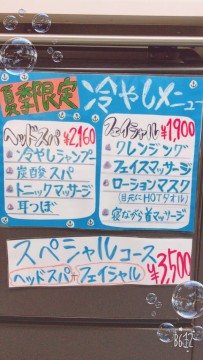 夏季限定 冷やしメニュー
ヘッドスパ ¥2,160
冷やしシャンプー
炭酸スパ
トニックマッサージ
耳つぼ
フェイシャル ¥1,900
クレンジング
フェイスマッサージ
ローションマスク
(目元にHOTタオル)
寝ながら首マッサージ
スペシャルコース
ヘッドスパ+フェイシャル ¥3,500
B612